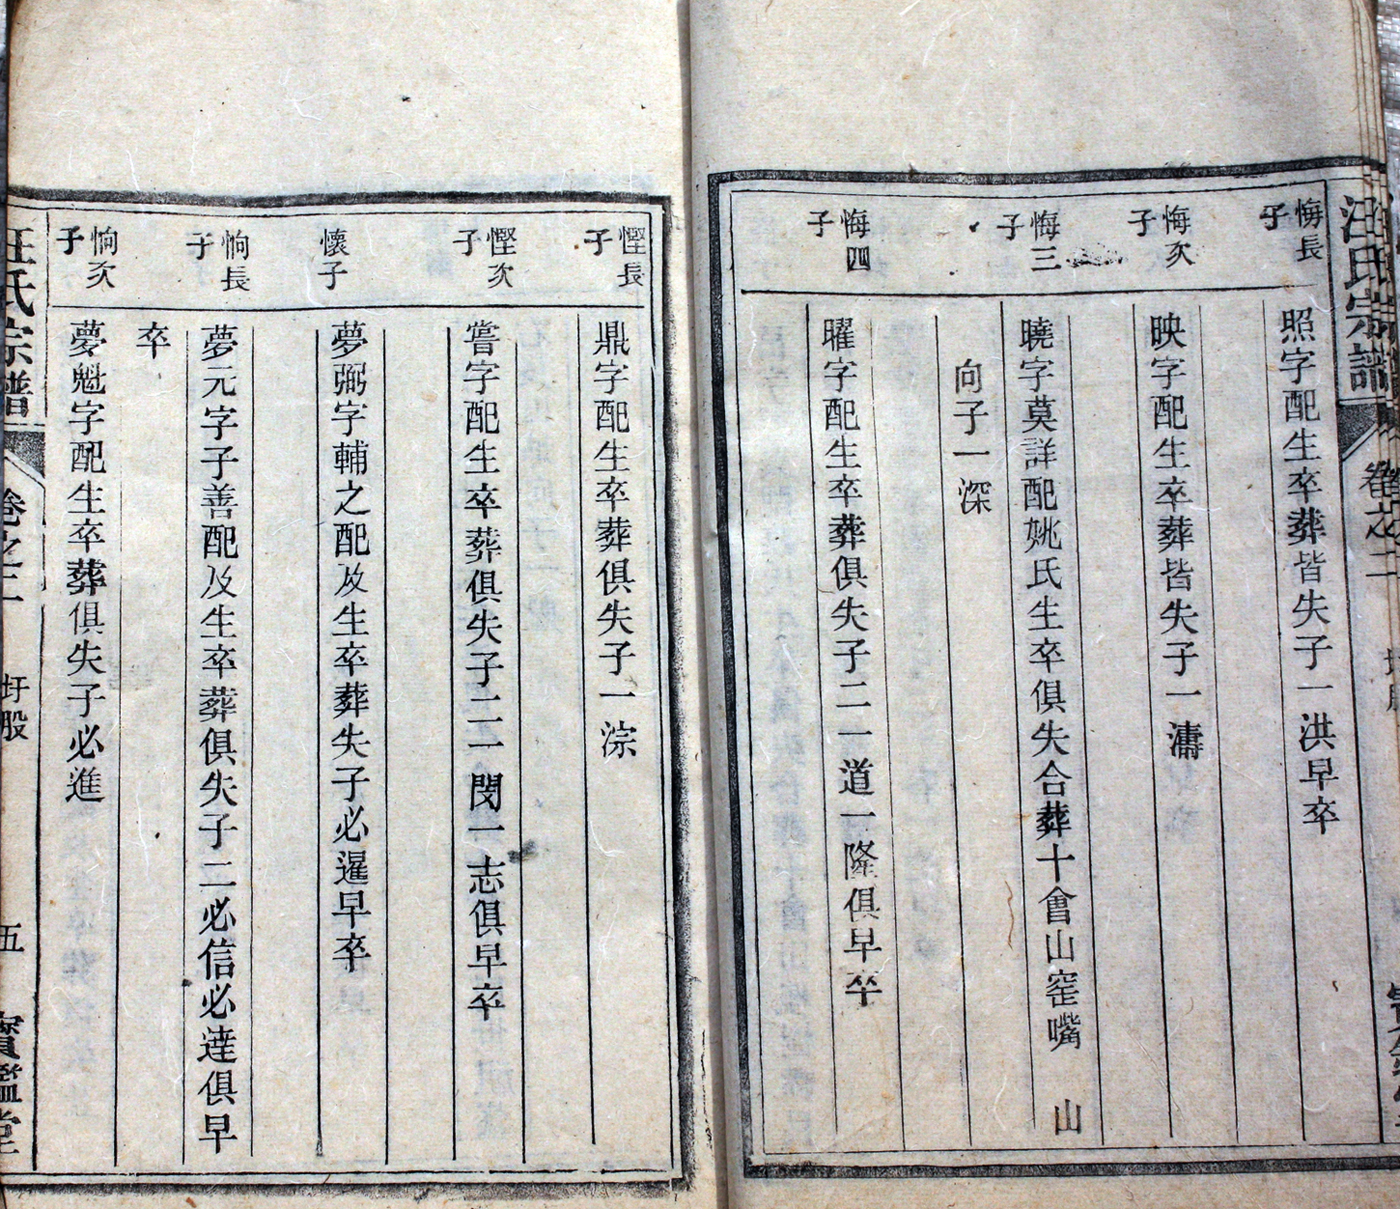 汪氏宗譜
卷之二
悔長子
照字配生卒葬皆失子一洪早卒
悔次子
映字配生卒葬皆失子一濤
悔三子
曉字莫詳配姚氏生卒俱失合葬十會山窑嘴 山
向子一深
悔四子
曜字配生卒葬俱失子二一道一隆俱早卒
慳長子
鼎字配生卒葬俱失子一淙
慳次子
嘗字配生卒葬俱失子二一閔一志俱早卒
懷子
夢弼字輔之配及生卒葬失子必暹早卒
恦長子
夢元字子善配及生卒葬俱失子二必信必達俱早
卒
恦次子
夢魁字配生卒葬俱失子必進
汪氏宗譜
卷之二
圩股
五
寶鑑堂